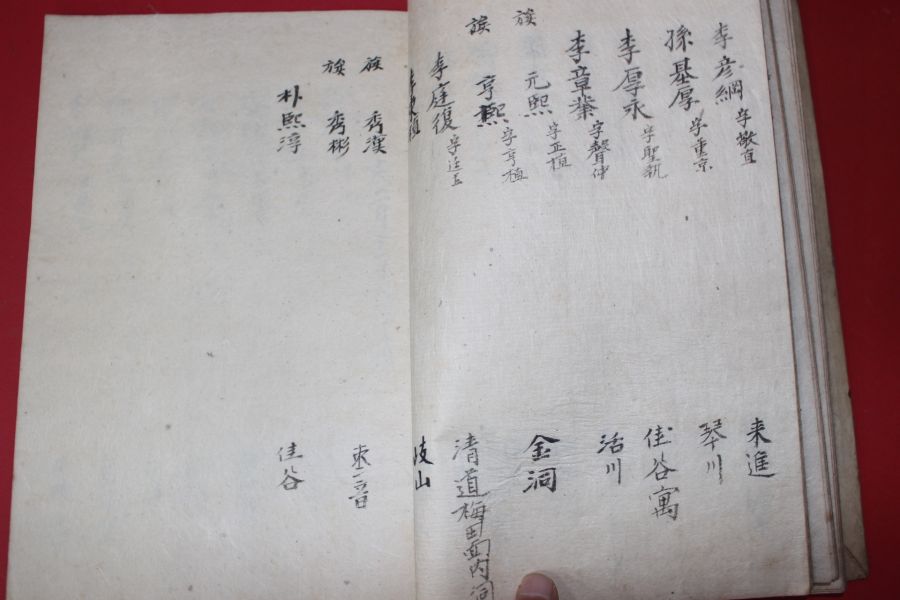 李彦綱 字敬直 来進
孫基厚 字重京 琴川
李厚永 字聖執 佳谷寓
李章業 字聲仲 活川
族 元熙 字正植 金洞
族 亨熙 字亨植
李庭復 清道梅田面内洞
岐山
族 秀漢
族 秀彬
朴熙淳 佳谷